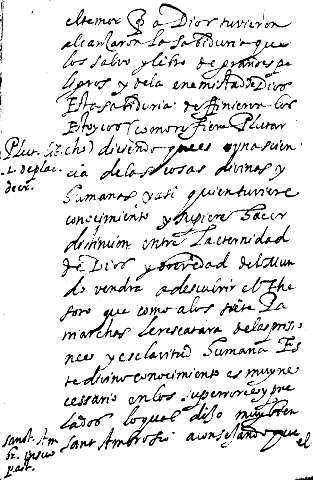 el temor q̃ a Dios tuvieron
alcanzaron la sabiduria que
los salvo y libro de grandes pe
ligros y de la enemistad de Dios
Esta sabiduria definieron los
Estoycos (como refiere Plutar
Plut. li.
cho) diciendo que es vyna scien
1. de plac.
decr.
cia de las cosas divinas y
humanas y asi quien tuviere
conocimiento y supiere hacer
distincion entre la eternidad
de Dios y brevedad del Mun
do vendra a descubrir el the
soro que como a los siete Pa
marchas le rescatara de las prisio
nes y esclavitud humana Es
te divino conocimiento es muy ne
cessario en los superiores y pre
lados lo qual dijo muy bien
sanct. Am
br. in suo
past.
sant Ambrosio aconsejando que
el